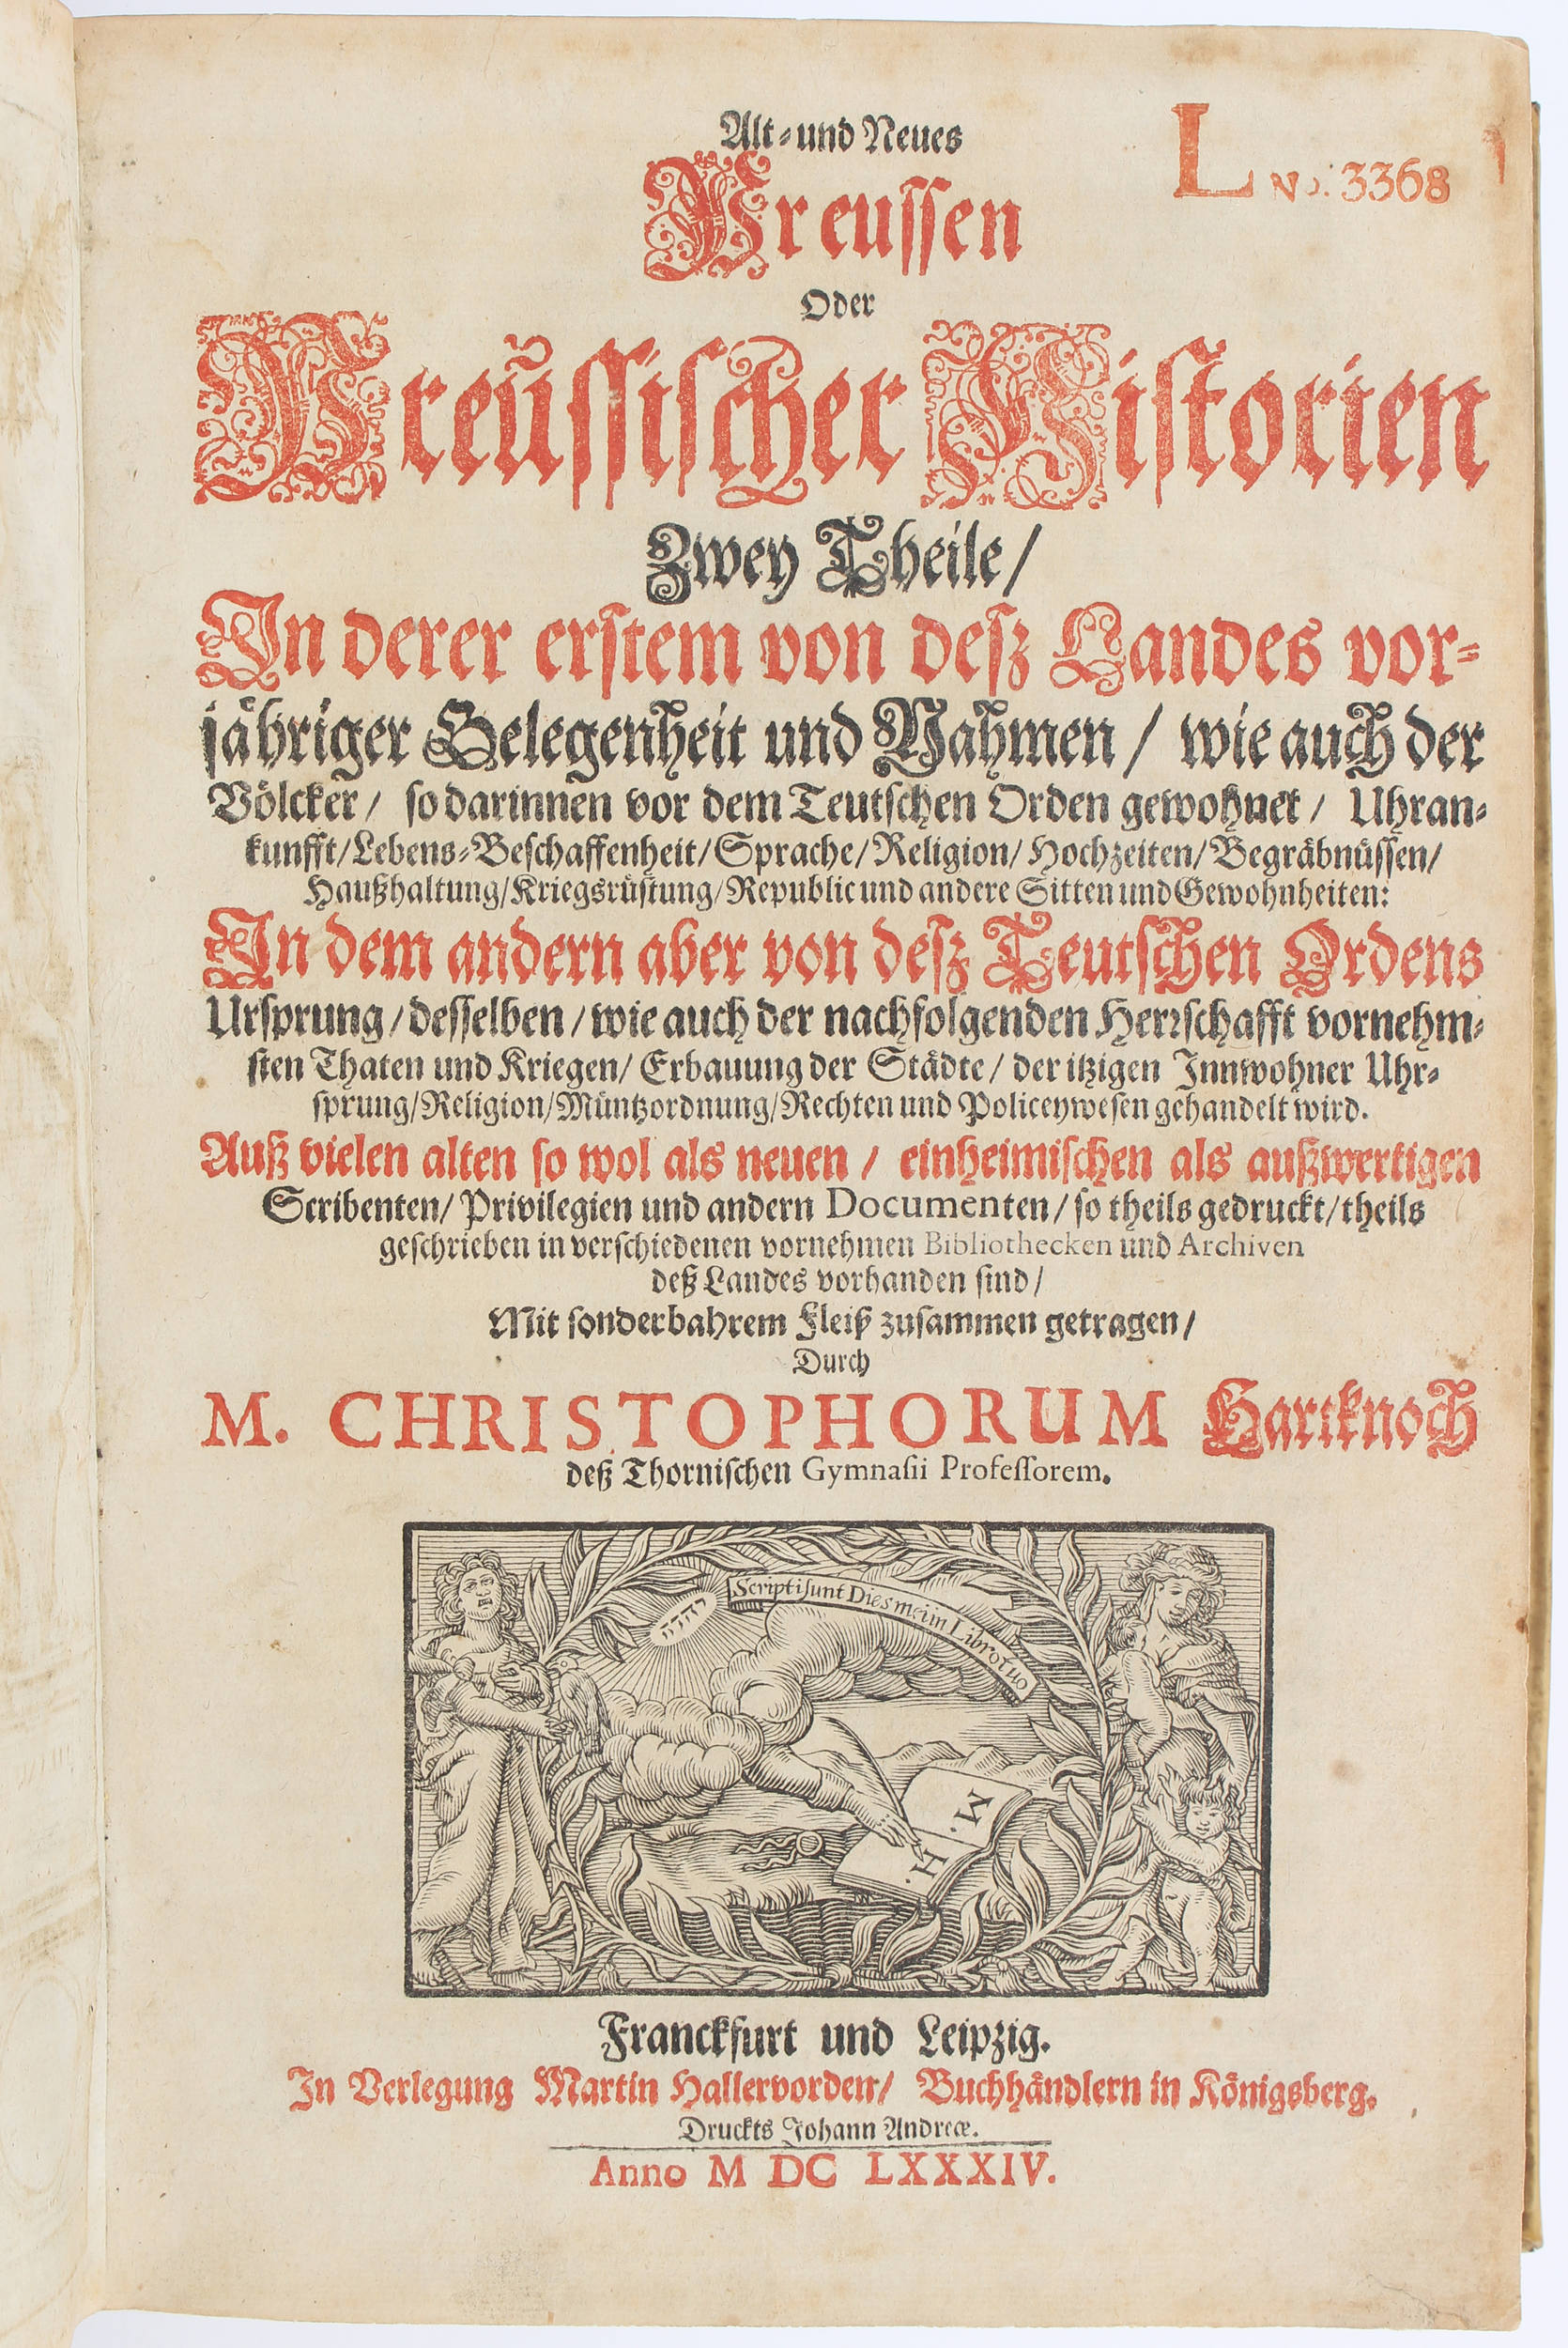 Alt- und Neues
L No. 3368
Preussen
Oder
Preüssischer Historien
Zwey Theile/
In derer erstem von deß Landes vor-
jähriger Gelegenheit und Nahmen / wie auch der
Völcker / so darinnen vor dem Teutschen Orden gewohnet / Uhran-
kunfft/Lebens-Beschaffenheit/Sprache/Religion/Hochzeiten/Begräbnüssen/
Haußhaltung/Kriegsrüstung/Republic und andere Sitten und Gewohnheiten:
In dem andern aber von deß Teutschen Ordens
Ursprung/desselben/wie auch der nachfolgenden Herrschafft vornehm-
sten Thaten und Kriegen/ Erbauung der Städte/ der itzigen Innwohner Uhr-
sprung/Religion/Müntzordnung/Rechten und Policeywesen gehandelt wird.
Auß vielen alten so wol als neuen / einheimischen als außwertigen
Scribenten/ Privilegien und andern Documenten/ so theils gedruckt/theils
geschrieben in verschiedenen vornehmen Bibliothecken und Archiven
deß Landes vorhanden sind/
Mit sonderbahrem Fleiß zusammen getragen/
Durch
M. CHRISTOPHORUM Hartknoch
deß Thornischen Gymnasii Professorem.
Scripti sunt Dies mei in Libro tuo
יהוה
M.
H.
Franckfurt und Leipzig.
In Verlegung Martin Hallervorden/ Buchhändlern in Königsberg.
Druckts Johann Andreæ.
Anno M DC LXXXIV.